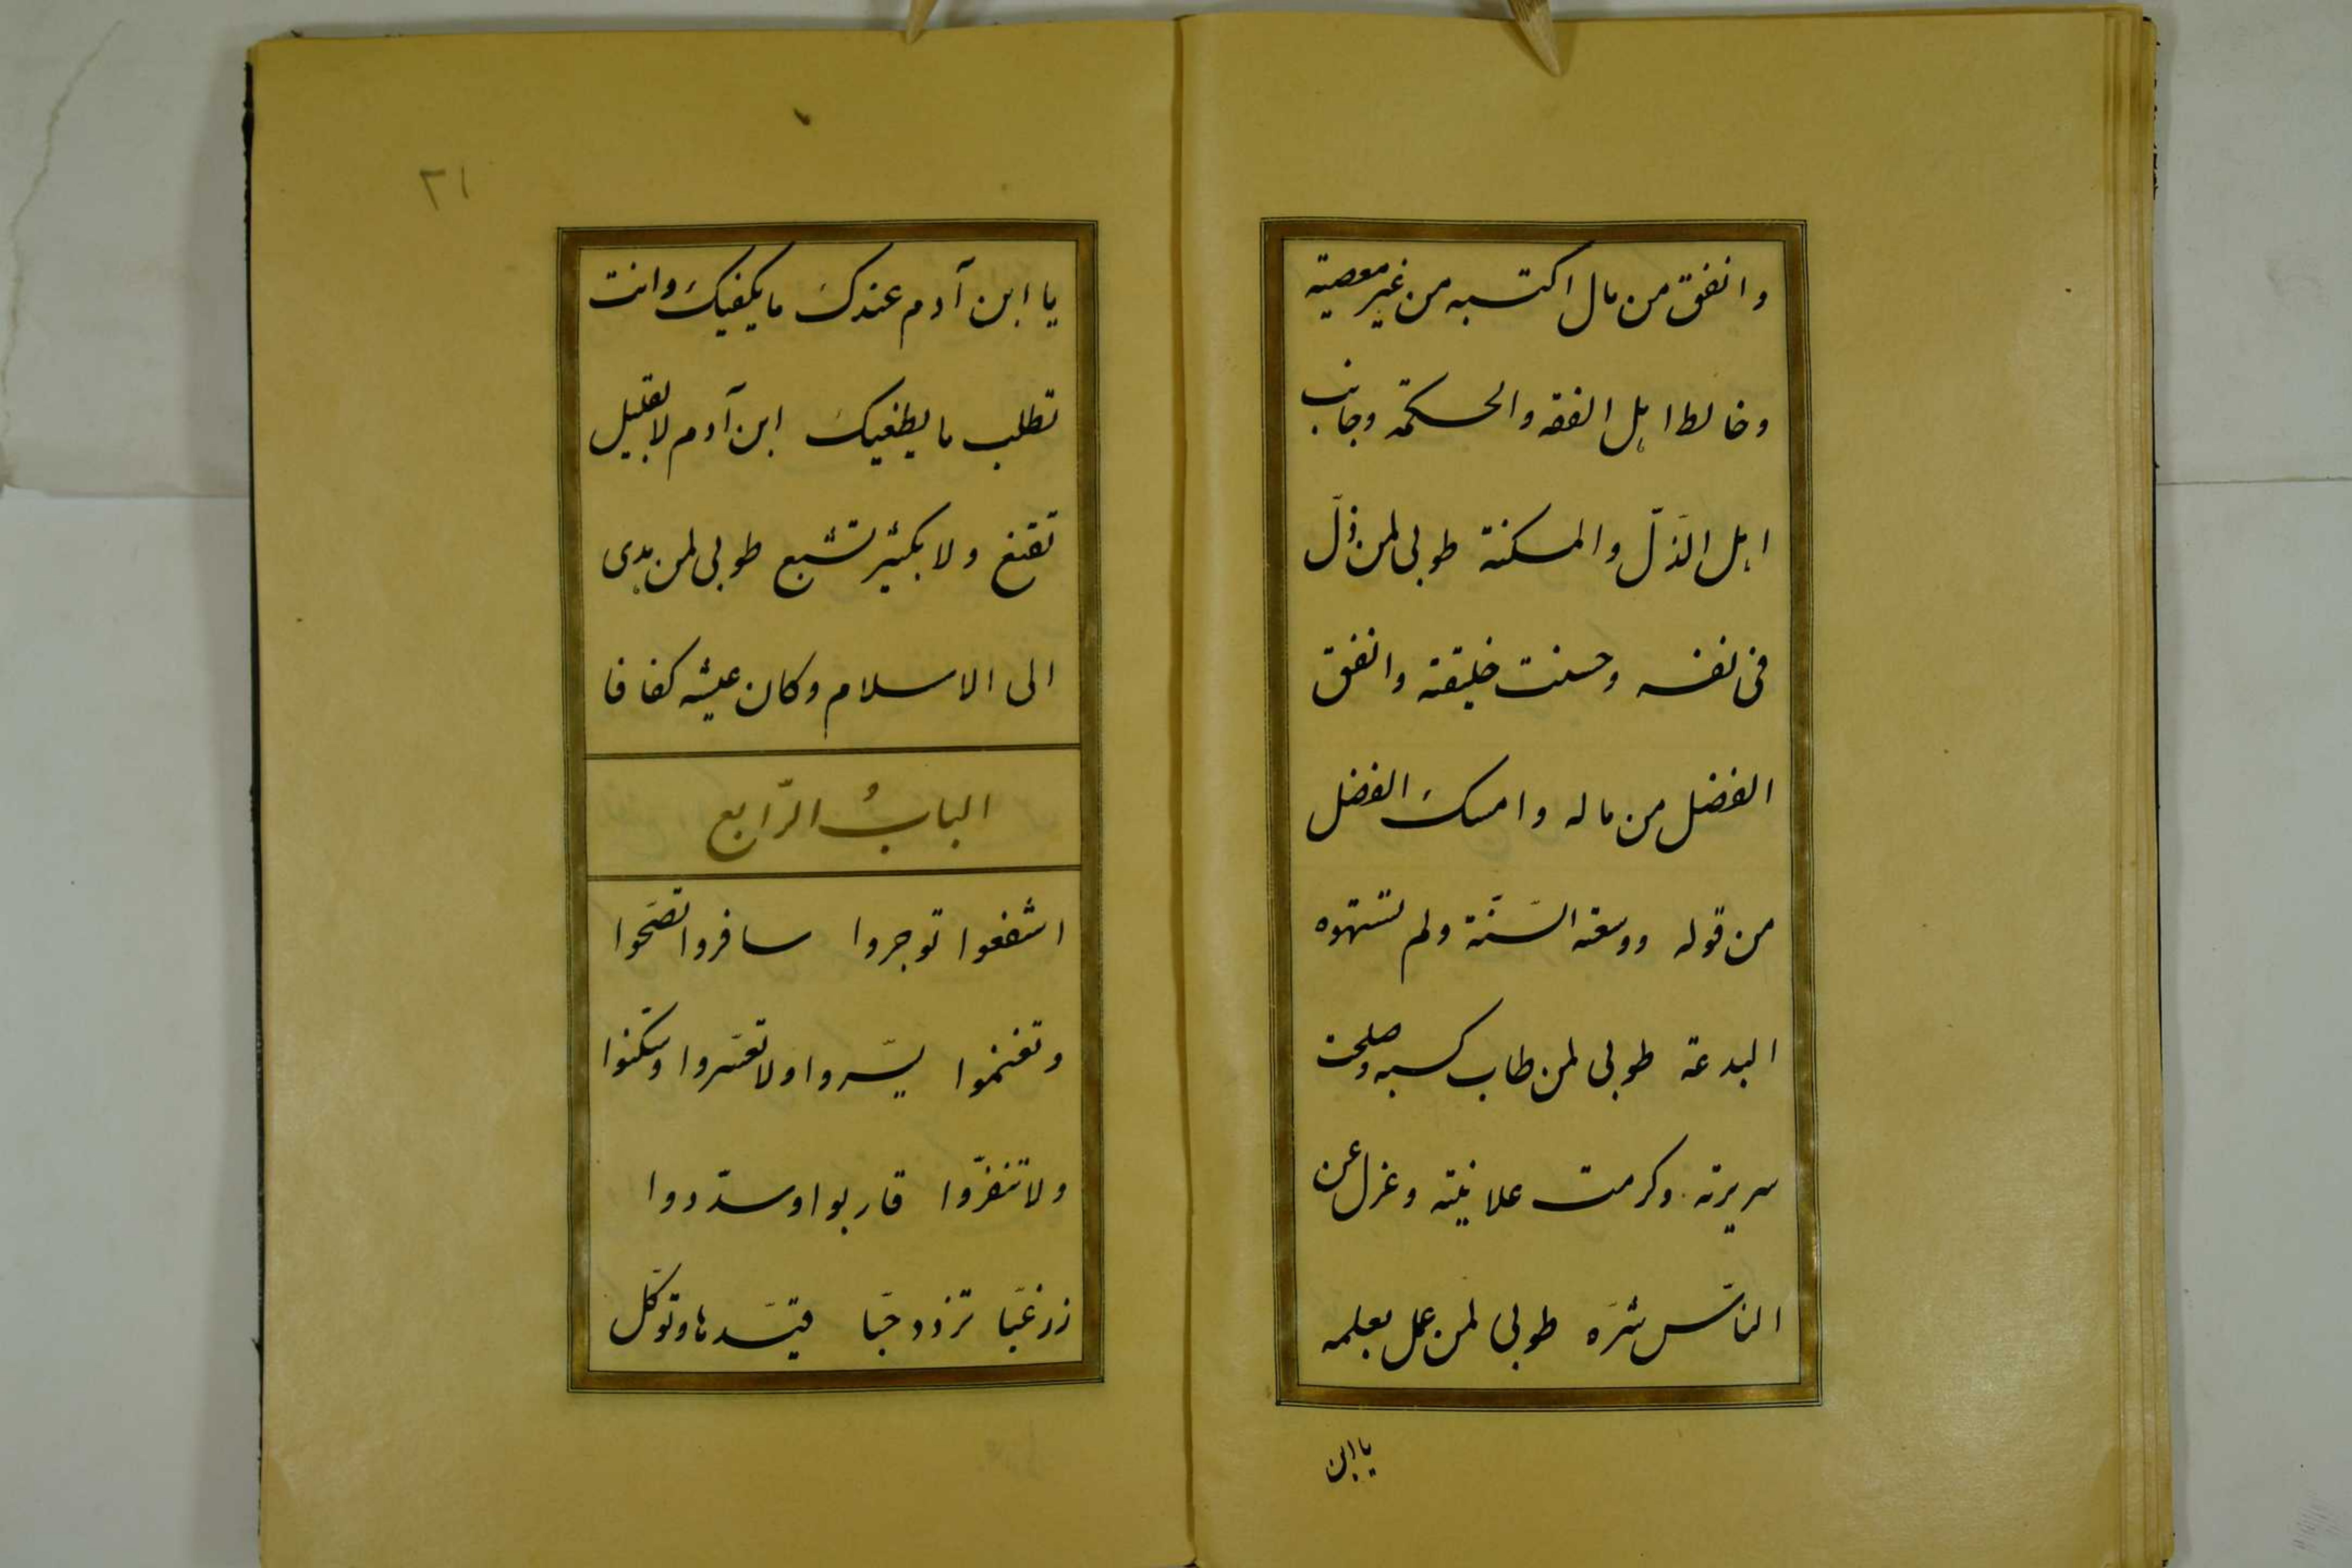 وانفق من مال اكتسبه من غير معصية
وخالط اهل الفقه والحكمة وجانب
اهل الذلّ والمسكنة طوبى لمن ذلّ
فى نفسه وحسنت خليقته وانفق
الفضل من ماله وامسك الفضل
من قوله ووسعته السّنّة ولم تستهوه
البدعة طوبى لمن طاب كسبه وصلحت
سريرته وكرمت علانيته وعزل عن
النّاس شرّه طوبى لمن عمل بعلمه
يا ابن
٢١
يا ابن آدم عندكَ ما يكفيكَ وانت
تطلب ما يطغيكَ ابن آدم لا بقليل
تقنع ولا بكثير تشبع طوبى لمن هدى
الى الاسلام وكان عيشه كفافا
البابُ الرّابع
اشفعوا توجروا سافروا تصحّوا
وتغنموا يسّروا ولا تعسّروا وسكّنوا
ولا تنفّروا قاربوا وسدّدوا
زر غبّا تزدد حبّا قيّدها وتوكّل